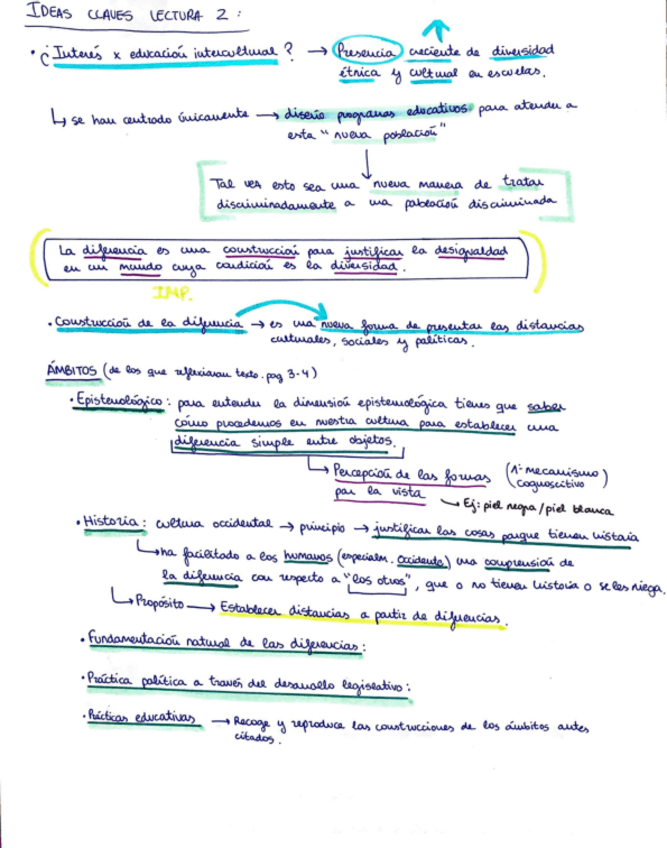 IDEAS CLAVES LECTURA 2:
· ¿Interés x educación intercultural? → Presencia creciente de diversidad
étnica y cultural en escuelas.
↳ se han centrado únicamente → diseño programas educativos para atender a
esta "nueva población"
Tal vez esto sea una nueva manera de tratar
discriminadamente a una población discriminada
La diferencia es una construcción para justificar la desigualdad
en un mundo cuya condición es la diversidad.
IMP.
· Construcción de la diferencia → es una nueva forma de presentar las distancias
culturales, sociales y políticas.
ÁMBITOS (de los que reflexionan texto. pag 3-4)
· Epistemológico: para entender la dimensión epistemológica tienes que saber
cómo procedemos en nuestra cultura para establecer una
diferencia simple entre objetos.
↳ Percepción de las formas (1º mecanismo)
por la vista cognoscitivo
→ Ej: piel negra/piel blanca
· Historia: cultura occidental → principio → justificar las cosas porque tienen historia
↳ ha facilitado a los humanos (especialm. occidente) una comprensión de
la diferencia con respecto a "los otros", que o no tienen historia o se les niega.
↳ Propósito → Establecer distancias a partir de diferencias.
· Fundamentación natural de las diferencias:
· Práctica política a través del desarrollo legislativo:
· Prácticas educativas → Recoge y reproduce las construcciones de los ámbitos antes
citados.